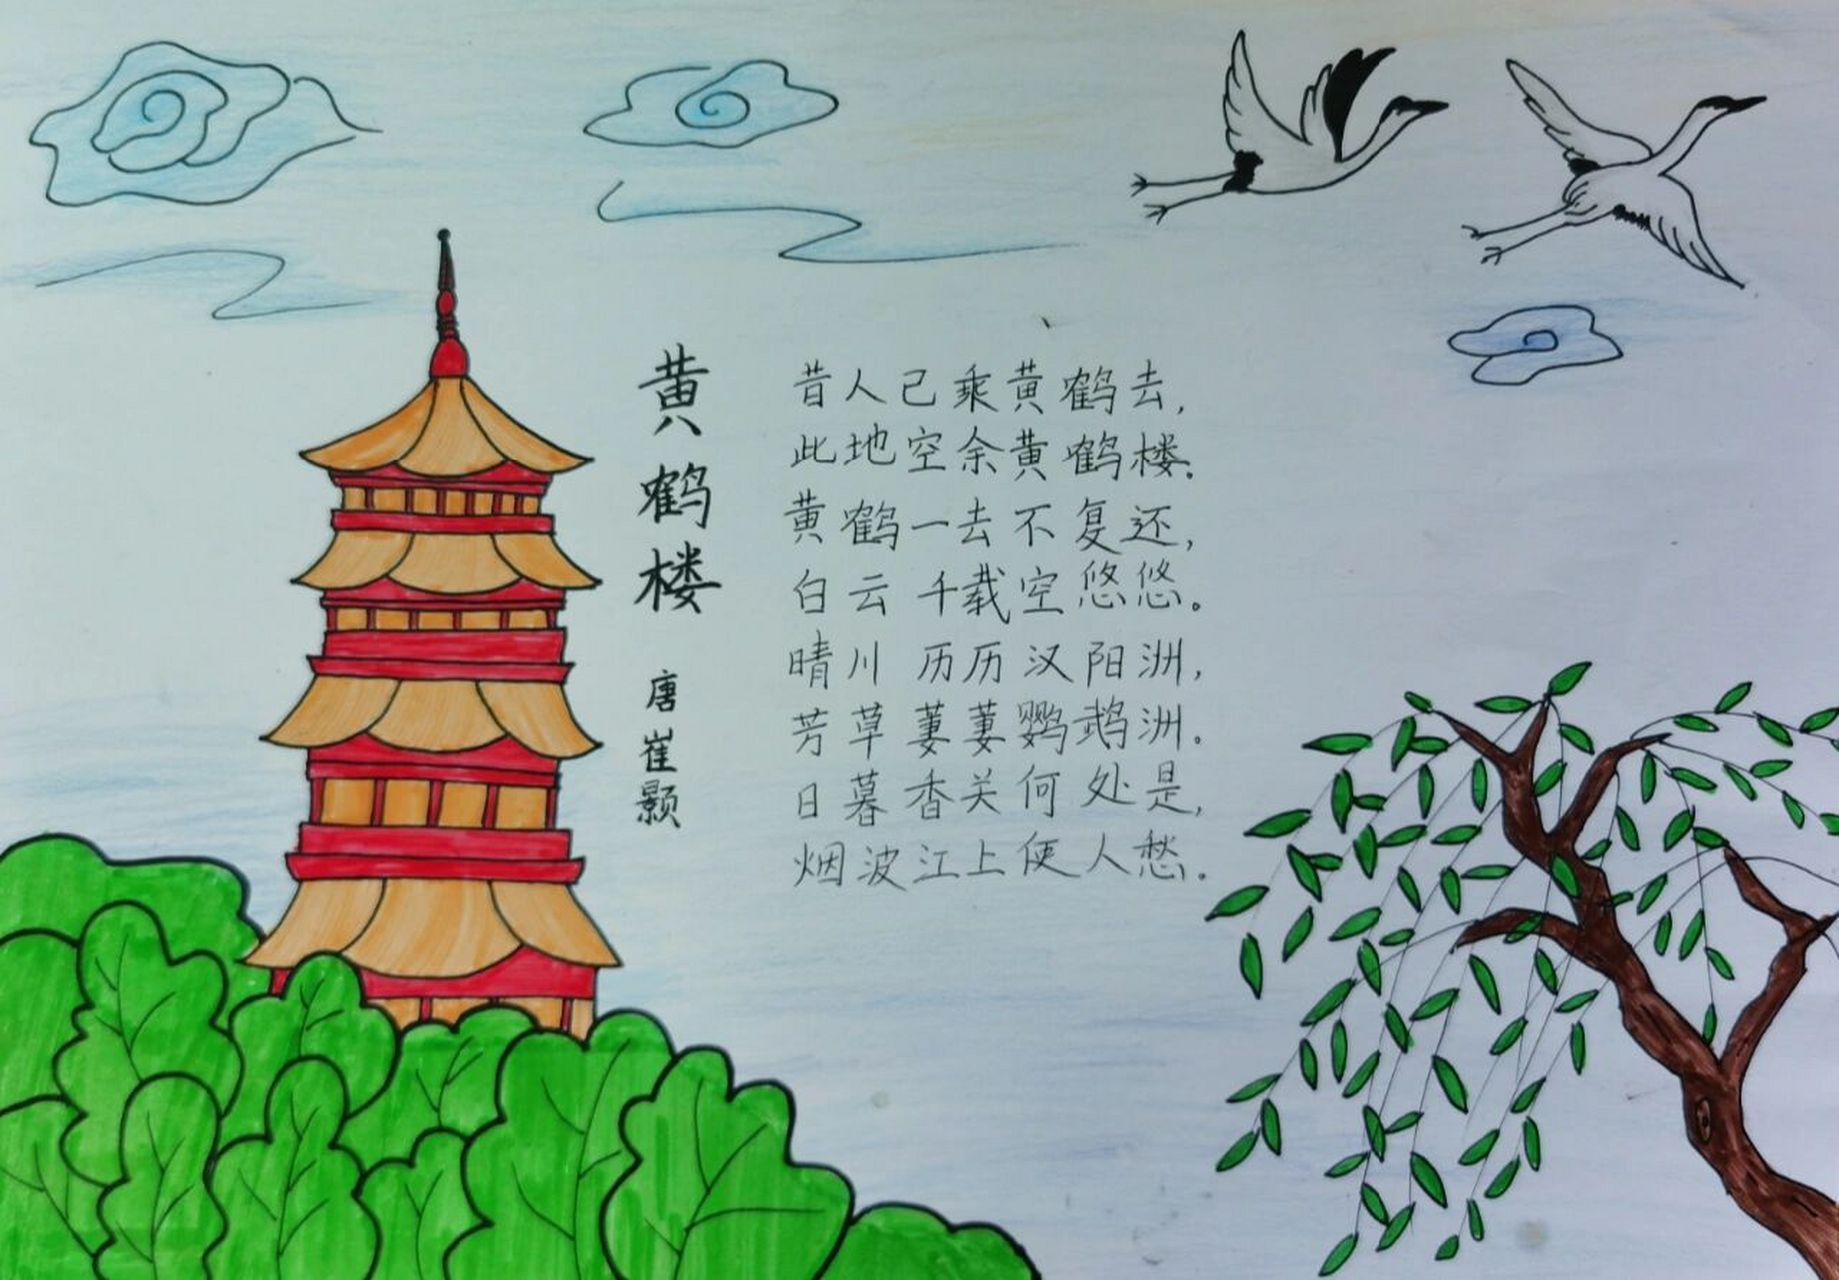 黄鹤楼
唐 崔颢
昔人己乘黄鹤去,
此地空余黄鹤楼.
黄鹤一去不复还,
白云千载空悠悠。
晴川历历汉阳洲,
芳草萋萋鹦鹉洲。
日暮香关何处是,
烟波江上便人愁。